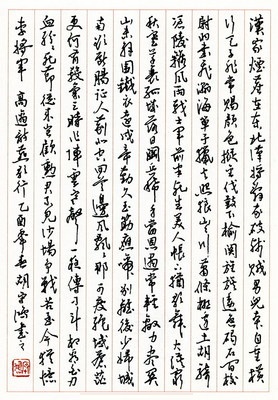 漢家煙塵在東北漢將辭家破殘賊男兒本自重橫
行天子非常賜顏色摐金伐鼓下榆關旌旆逶迤碣石間校
尉羽書飛瀚海單于獵火照狼山山川蕭條極邊土胡騎
憑陵雜風雨戰士軍前半死生美人帳下猶歌舞大漠窮
秋塞草衰孤城落日鬥兵稀身當恩遇常輕敵力盡關
山未解圍鐵衣遠戍辛勤久玉箸應啼別離後少婦城
南欲斷腸征人薊北空回首邊風飄飄那可度絕域蒼茫
更何有殺氣三時作陣雲寒聲一夜傳刁斗相看白刃
血紛紛死節從來豈顧勳君不見沙場爭戰苦至今猶憶
李將軍 高適燕歌行乙酉年春胡書